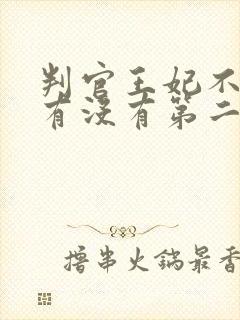 判官王妃不
有没有第二
撸串火锅最香